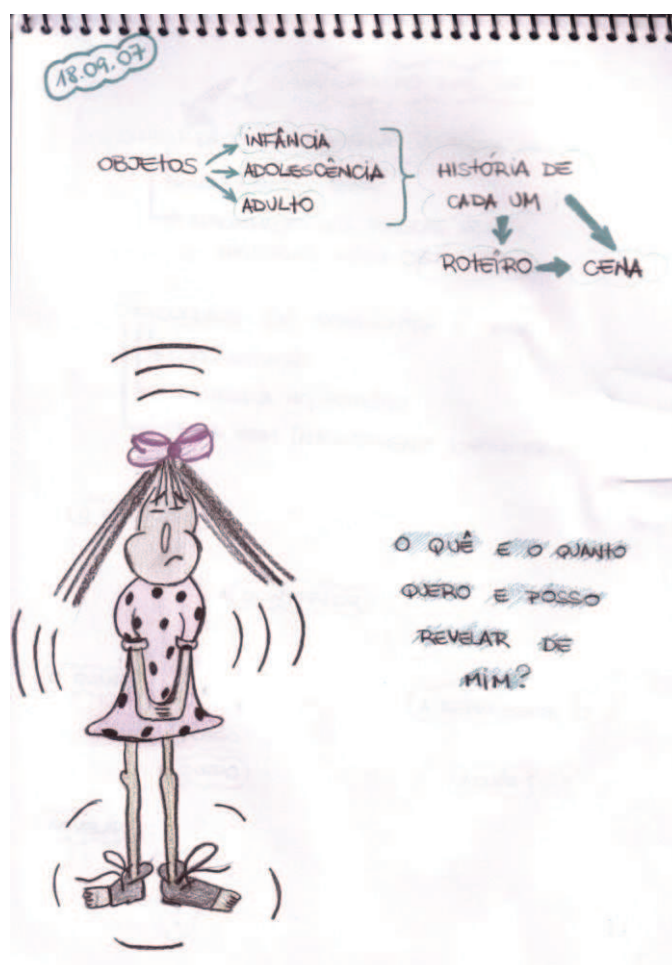 18.09.07
OBJETOS
INFÂNCIA
ADOLESCÊNCIA
ADULTO
HISTÓRIA DE
CADA UM
ROTEIRO
CENA
O QUÊ E O QUANTO
QUERO E POSSO
REVELAR DE
MIM?